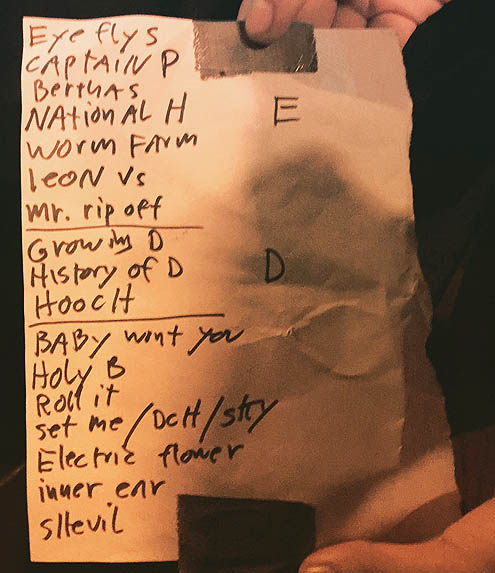 Eye flys
CAPTAIN P
Berthas
NATIONAL H
E
WORM FARM
leon vs
mr. rip off
Growing D
History of D
D
HOOCH
BABY wont you
Holy B
Roll it
set me / DcH / sky
Electric flower
inner ear
sllevil